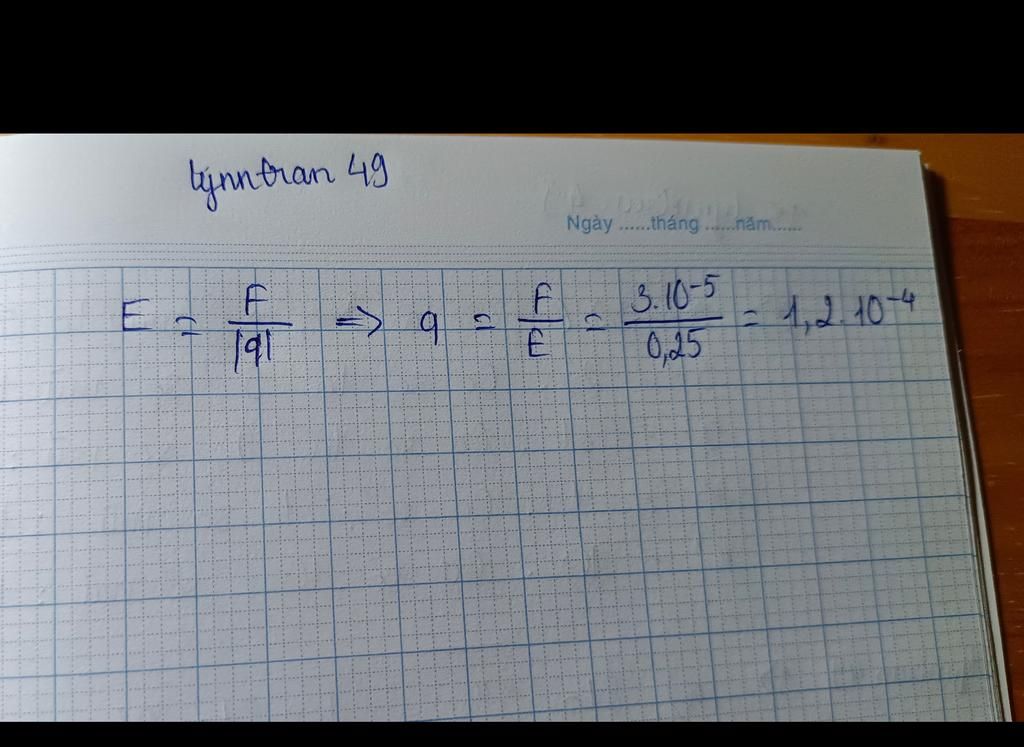 lýnntran 49
Ngày ......tháng ......năm......
E = F/|q| => q = F/E = 3.10⁻⁵/0,25 = 1,2.10⁻⁴